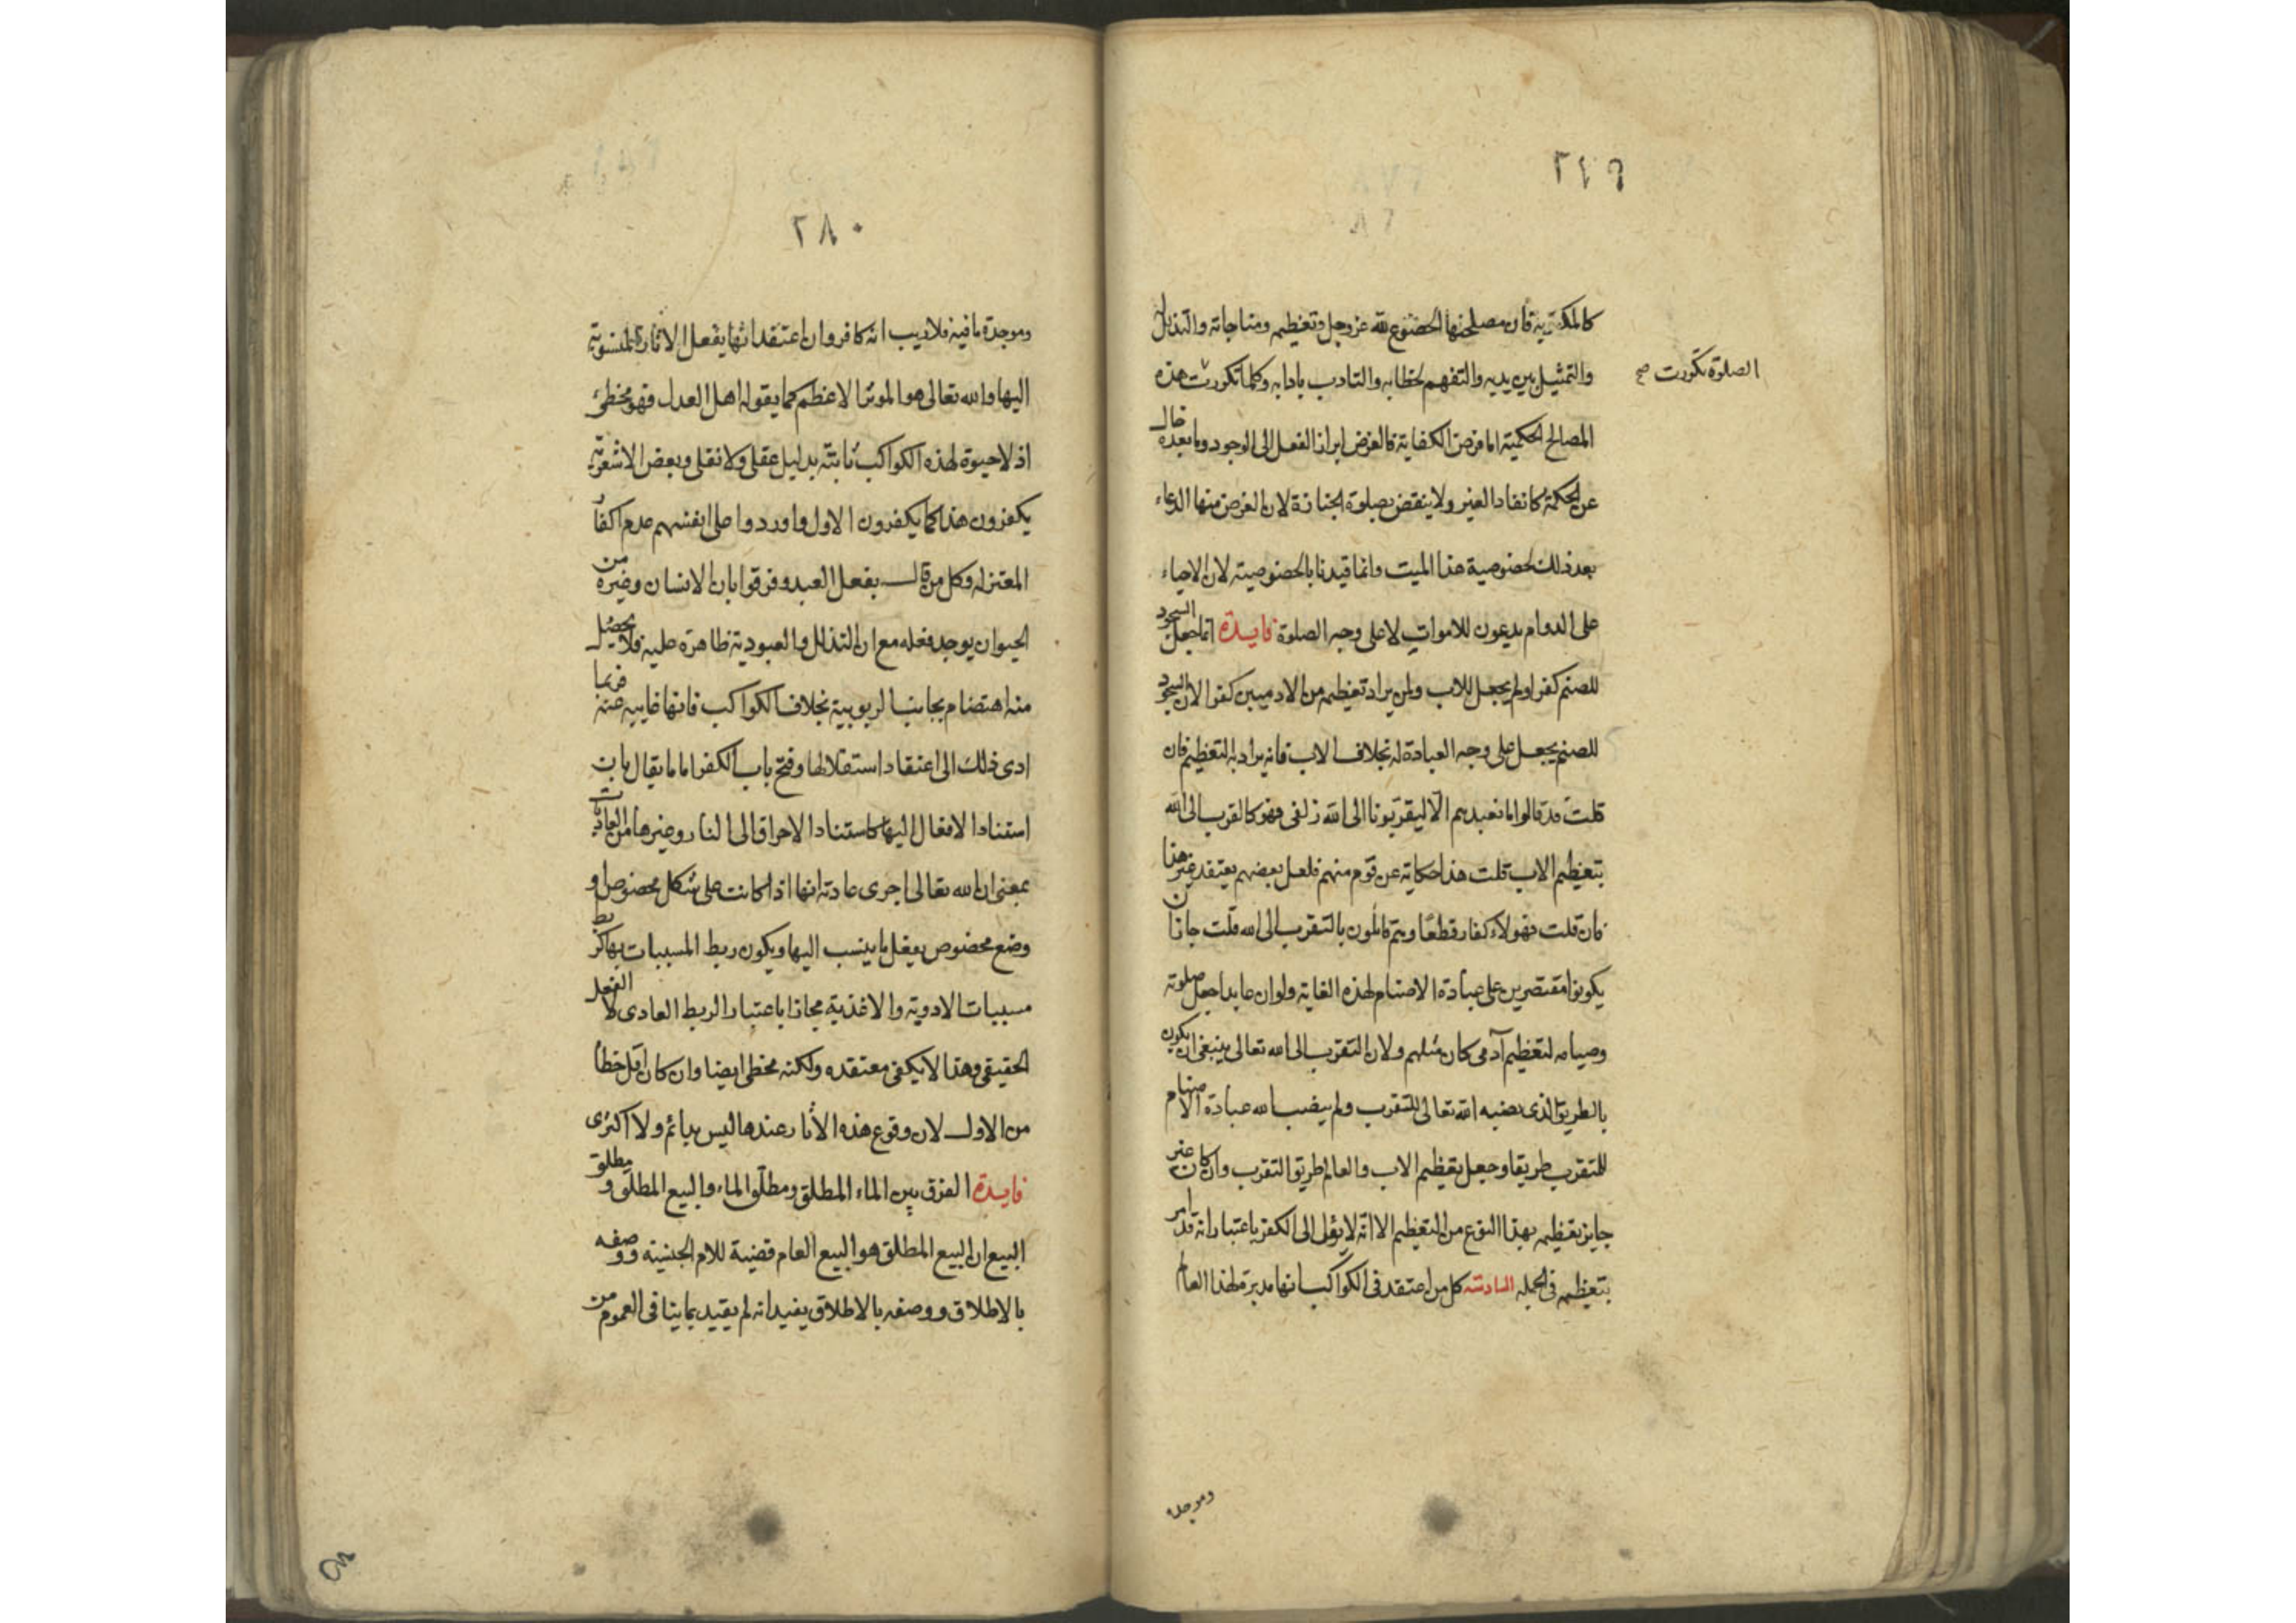 ٢٤٩
كالمكتوبة فان مصلحتها الخضوع لله عز وجل وتعظيمه ومناجاته والتذلل
والتمثيل بين يديه والتفهم لخطابه والتادب بادابه وكلما تكررت هذه
الصلوة تكررت صح
المصالح الحكمية اما فرض الكفاية فالغرض ابراز الفعل الى الوجود وما بعده خال
عن الحكمة كانقاد الغير ولا ينقض بصلوة الجنازة لان الغرض منها الدعاء
بعد ذلك لخصوصية هذا الميت وانما قيدنا بالخصوصية لان الاحياء
على الدوام يدعون للاموات لا على وجه الصلوة فايدة انما جعل السجود
للصنم كفرا ولم يجعل للاب ولمن يراد تعظيمه من الادميين كفرا لان السجود
للصنم يجعل على وجه العبادة له بخلاف الاب فانه يراد به التعظيم فان
قلت قد قالوا ما نعبدهم الا ليقربونا الى الله زلفى فهو كالقرب الى الله
بتعظيم الاب قلت هذا حكاية عن قوم منهم فلعل بعضهم يعتقد غير هذا
فان قلت فهولاء كفار قطعا وهم قائلون بالتقرب الى الله قلت جاز ان
يكونوا مقتصرين على عبادة الاصنام لهذه الغاية ولو ان عابدا جعل صلوته
وصيامه لتعظيم آدمي كان مثلهم ولان التقرب الى الله تعالى ينبغي ان يكون
بالطريق الذي نصبه الله تعالى للتقرب ولم ينصب الله عبادة الاصنام
للتقرب طريقا وجعل تعظيم الاب والعالم طريق التقرب وان كان غير
جايز تعظيمه بهذا النوع من التعظيم الا انه لا يؤل الى الكفر باعتبار انه قد امر
بتعظيمه في الجملة السادسة كل من اعتقد في الكواكب انها مدبرة لهذا العالم
وموجدة
٢٨٠
وموجدة ما فيه فلا ريب انه كافر وان اعتقد انها يفعل الاثار المنسوبة
اليها والله تعالى هو المؤثر الاعظم كما يقوله اهل العدل فهو مخطئ
اذ لا حيوة لهذه الكواكب ثابتة بدليل عقلي ولا نقلي وبعض الاشعرية
يكفرون هذا كما يكفرون الاول واوردوا على انفسهم عدم اكفار
المعتزله وكل من قال بفعل العبد وفرقوا بان الانسان وغيره من
الحيوان يوجد فعله مع ان التذلل والعبودية ظاهرة عليه فلا يحصل
منه اهتضام بجانب الربوبية بخلاف الكواكب فانها غايبه عنه فربما
ادى ذلك الى اعتقاد استقلالها وفتح باب الكفر اما ما يقال بان
استناد الافعال اليها كاستناد الاحراق الى النار وغيرها من العاديات
بمعنى ان الله تعالى اجرى عادته انها اذا كانت على شكل مخصوص او
وضع مخصوص يفعل ما ينسب اليها ويكون ربط المسببات بها كربط
مسببات الادوية والاغذية مجازا باعتبار الربط العادي لا الفعل
الحقيقي وهذا لا يكفر معتقده ولكنه مخطئ ايضا وان كان اقل خطأ
من الاول لان وقوع هذه الاثار عندها ليس بدائم ولا اكثرى
فايدة الفرق بين الماء المطلق ومطلق الماء والبيع المطلق ومطلق
البيع ان البيع المطلق هو البيع العام قضية للام الجنسية ووصفه
بالاطلاق ووصفه بالاطلاق يفيد انه لم يقيد بما ينافي العموم من